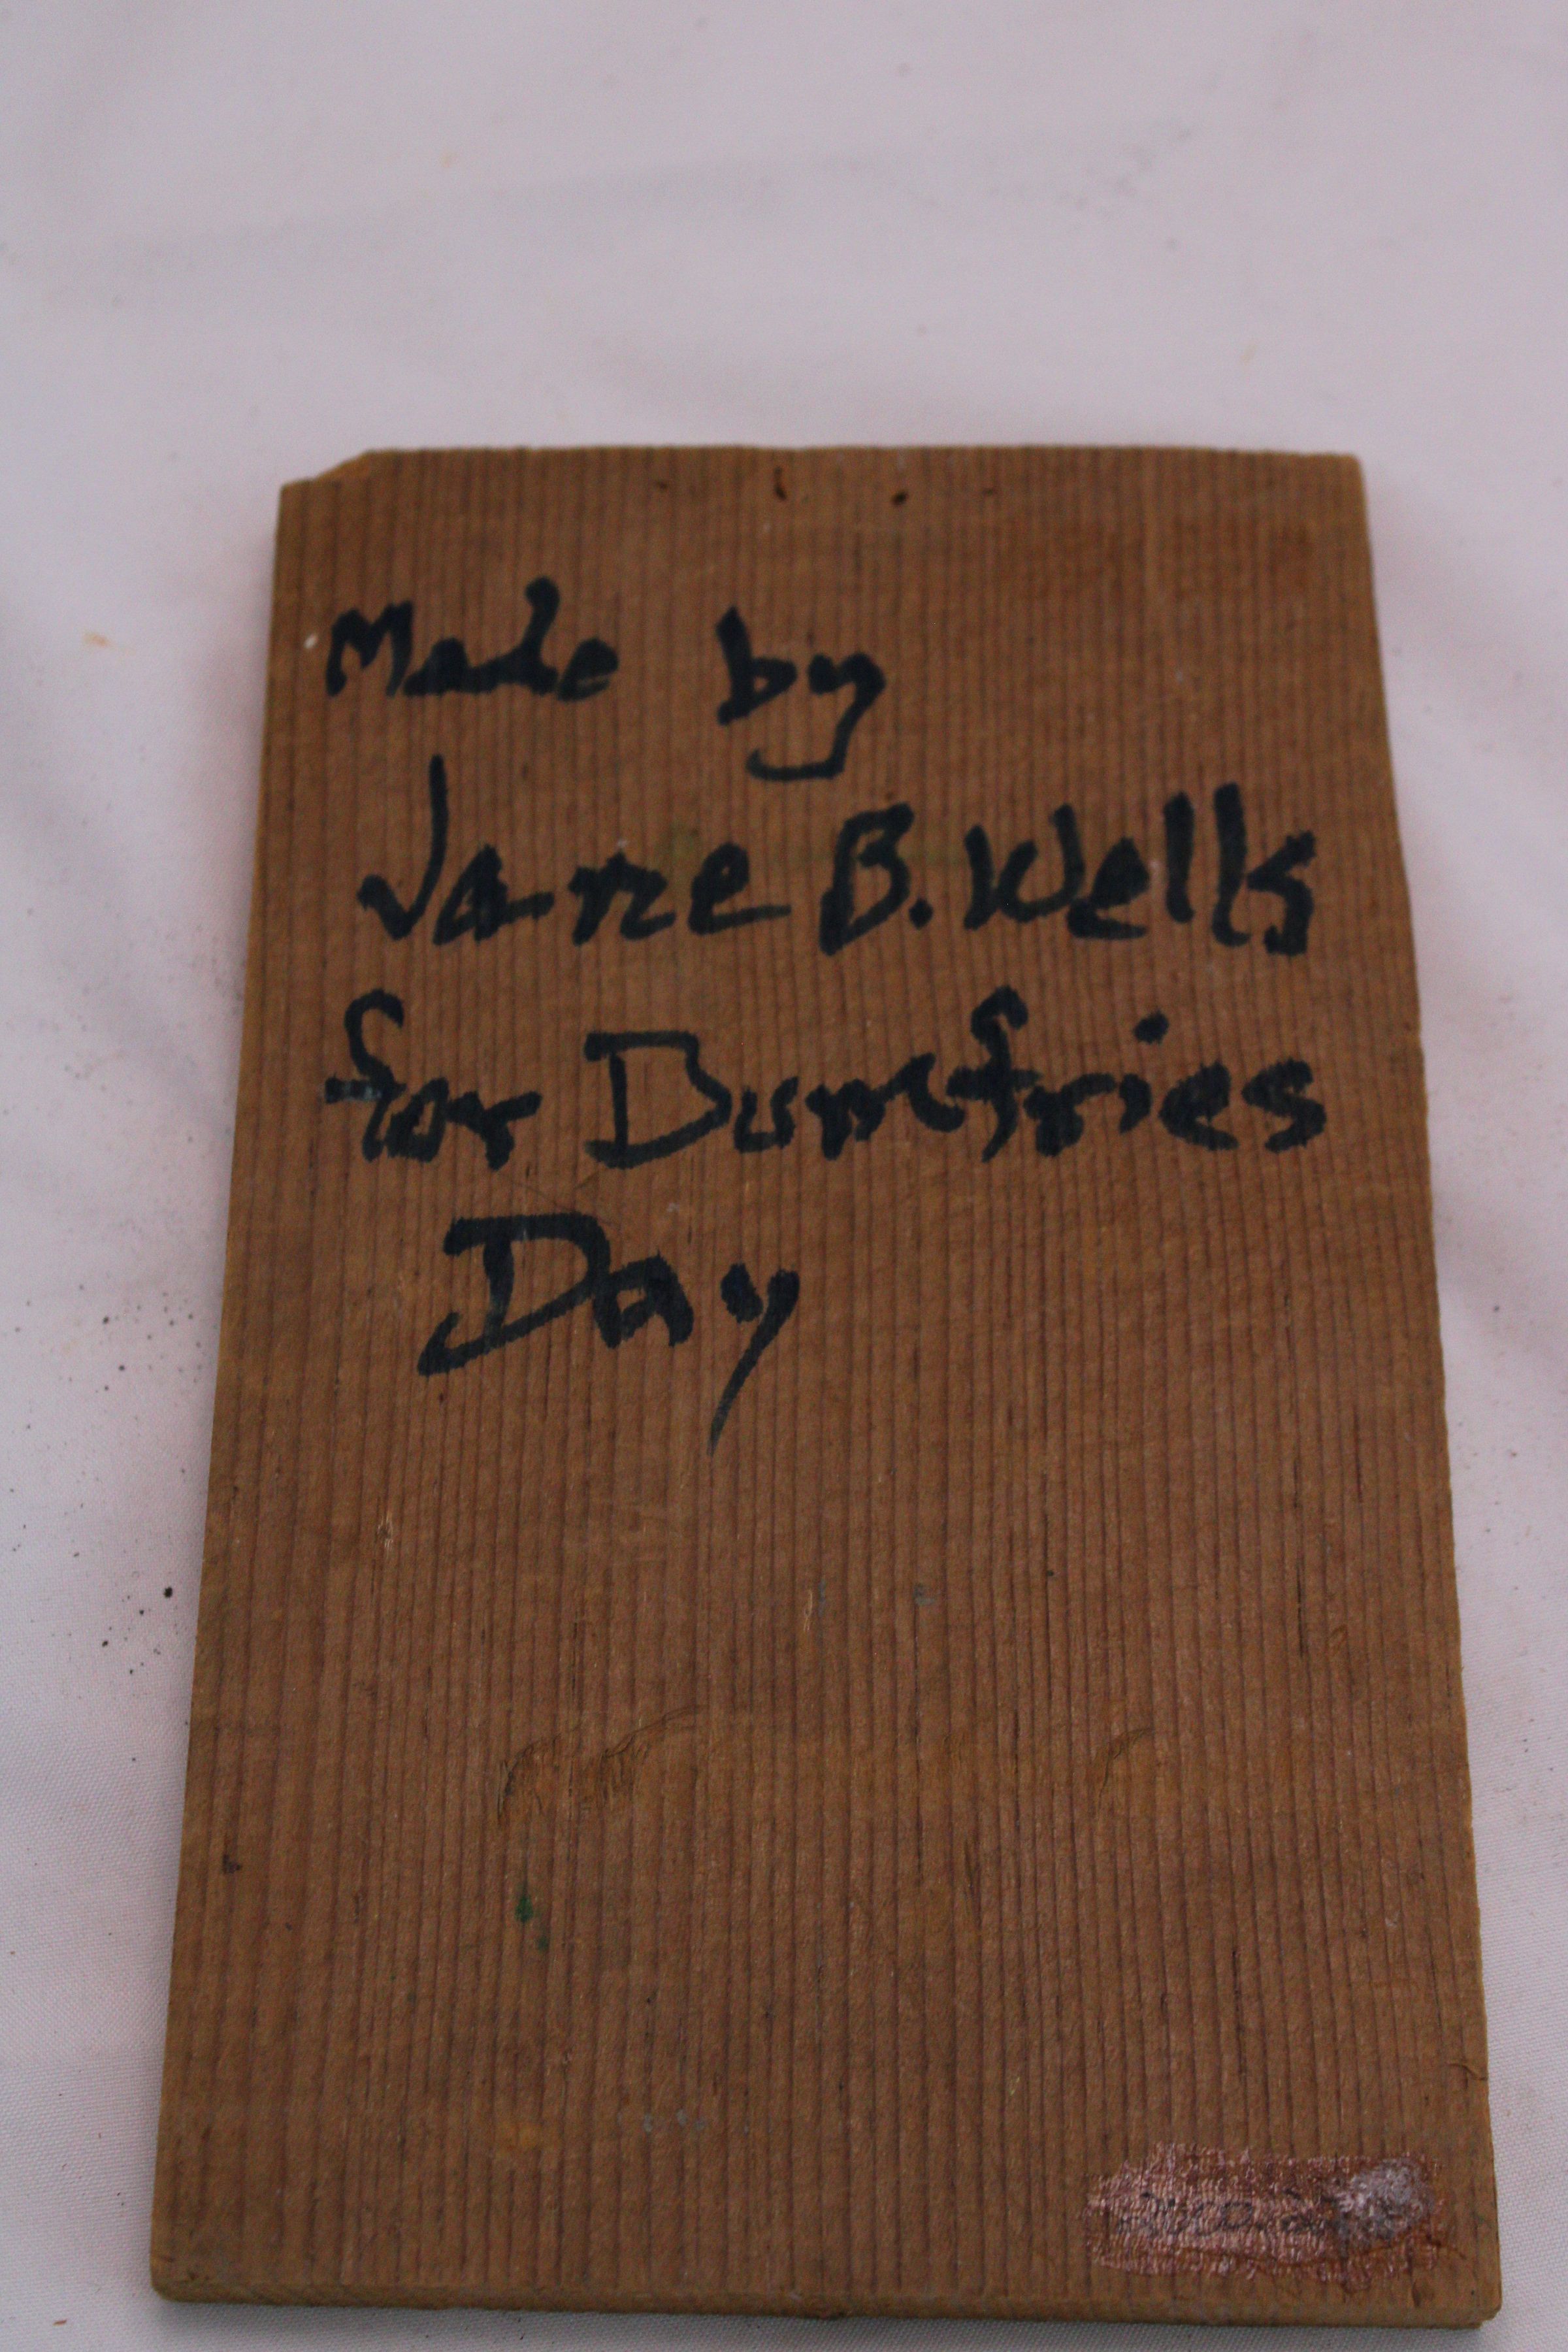 Made by
Jane B. Wells
for Dumfries
Day